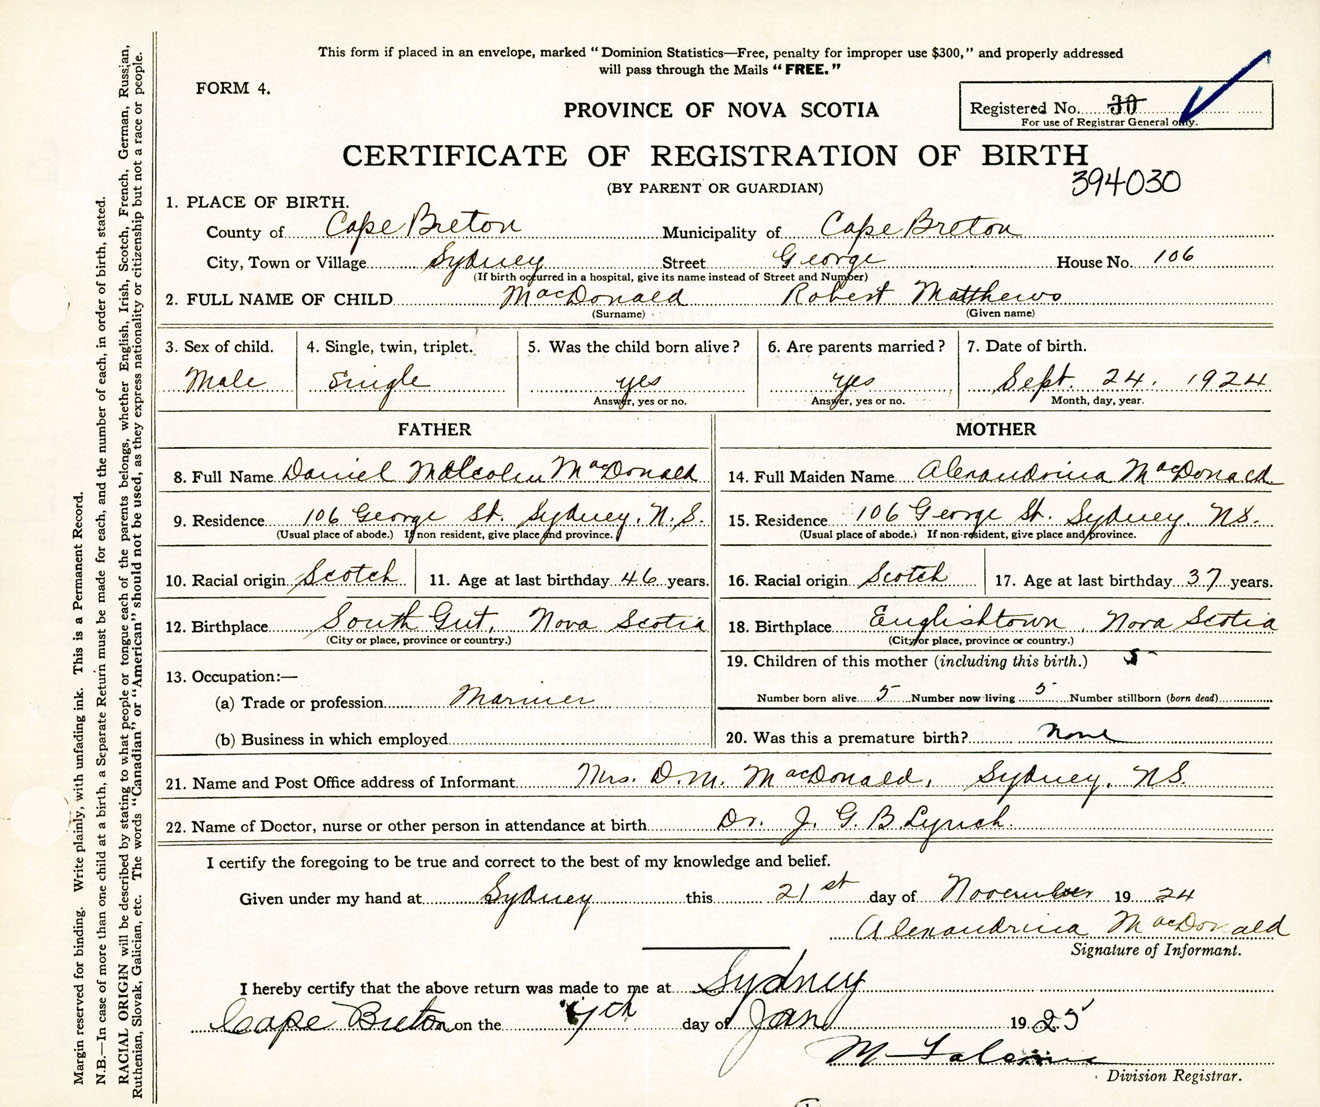 This form if placed in an envelope, marked "Dominion Statistics—Free, penalty for improper use $300," and properly addressed
will pass through the Mails "FREE."
FORM 4.
PROVINCE OF NOVA SCOTIA
Registered No. 30
For use of Registrar General only.
CERTIFICATE OF REGISTRATION OF BIRTH
394030
(BY PARENT OR GUARDIAN)
1. PLACE OF BIRTH.
County of Cape Breton Municipality of Cape Breton
City, Town or Village Sydney Street George House No. 106
(If birth occurred in a hospital, give its name instead of Street and Number)
2. FULL NAME OF CHILD MacDonald Robert Matthews
(Surname) (Given name)
3. Sex of child. 4. Single, twin, triplet. 5. Was the child born alive? 6. Are parents married? 7. Date of birth.
Male Single yes yes Sept. 24. 1924
Answer, yes or no. Answer, yes or no. Month, day, year.
FATHER MOTHER
8. Full Name Daniel Malcolm MacDonald 14. Full Maiden Name Alexandrina MacDonald
9. Residence 106 George St. Sydney. N.S. 15. Residence 106 George St. Sydney. NS.
(Usual place of abode.) If non resident, give place and province. (Usual place of abode.) If non-resident, give place and province.
10. Racial origin Scotch 11. Age at last birthday 46 years. 16. Racial origin Scotch 17. Age at last birthday 37 years.
12. Birthplace South Gut, Nova Scotia 18. Birthplace Englishtown, Nova Scotia
(City or place, province or country.) (City or place, province or country.)
19. Children of this mother (including this birth.) 5
13. Occupation:—
(a) Trade or profession Mariner Number born alive 5 Number now living 5 Number stillborn (born dead)
(b) Business in which employed 20. Was this a premature birth? None
21. Name and Post Office address of Informant Mrs. D.M. MacDonald, Sydney, NS.
22. Name of Doctor, nurse or other person in attendance at birth Dr. J. G. B Lynch.
I certify the foregoing to be true and correct to the best of my knowledge and belief.
Given under my hand at Sydney this 21st day of November 1924
Alexandrina MacDonald
Signature of Informant.
I hereby certify that the above return was made to me at Sydney
Cape Breton on the 7th day of Jan 1925
Division Registrar.
Margin reserved for binding. Write plainly, with unfading ink. This is a Permanent Record.
N.B.—In case of more than one child at a birth, a Separate Return must be made for each, and the number of each, in order of birth, stated.
RACIAL ORIGIN will be described by stating to what people or tongue each of the parents belongs, whether English, Irish, Scotch, French, German, Russian,
Ruthenian, Slovak, Galician, etc. The words "Canadian" or "American" should not be used, as they express nationality or citizenship but not a race or people.